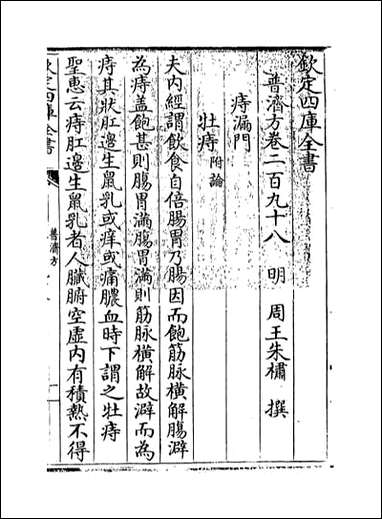 欽定四庫全書
普濟方卷二百九十八　明　周王朱橚　撰
痔漏門
牡痔附論
夫内經謂飲食自倍腸胃乃腸因而飽筋脉横解腸澼
為痔盖飽甚則腸胃滿腸胃滿則筋脉横解故澼而為
痔其狀肛邊生鼠乳或痒或痛膿血時下謂之牡痔
聖惠云痔肛邊生鼠乳者人臟腑空虚内有積熱不得
欽定四庫全書
普濟方